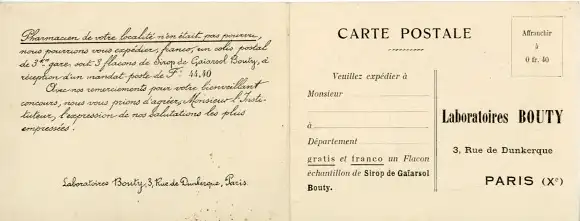 Pharmacien de votre localité n'en était pas pourvu,
nous pourrions vous expédier, franco, un colis postal
de 3kgs gare, soit 3 flacons de Sirop de Gaïarsol Bouty, à
réception d'un mandat-poste de Frs 44,40
Avec nos remerciements pour votre bienveillant
concours, nous vous prions d'agréer, Monsieur l'Insti-
tuteur, l'expression de nos salutations les plus
empressées.
Laboratoires Bouty, 3, Rue de Dunkerque, Paris.
CARTE POSTALE
Veuillez expédier à
Monsieur
à
Département
gratis et franco un Flacon
échantillon de Sirop de Gaïarsol
Bouty.
Affranchir
à
0 fr. 40
Laboratoires BOUTY
3, Rue de Dunkerque
PARIS (Xe)